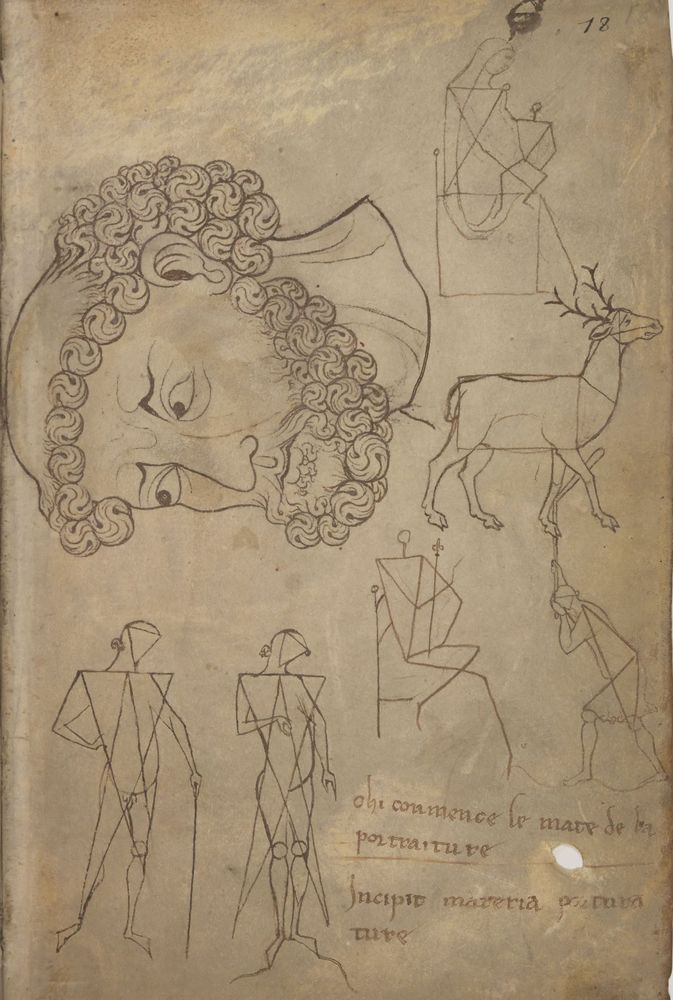 18
chi coumence le mate de la
portraiture
Incipit materia portura
ture